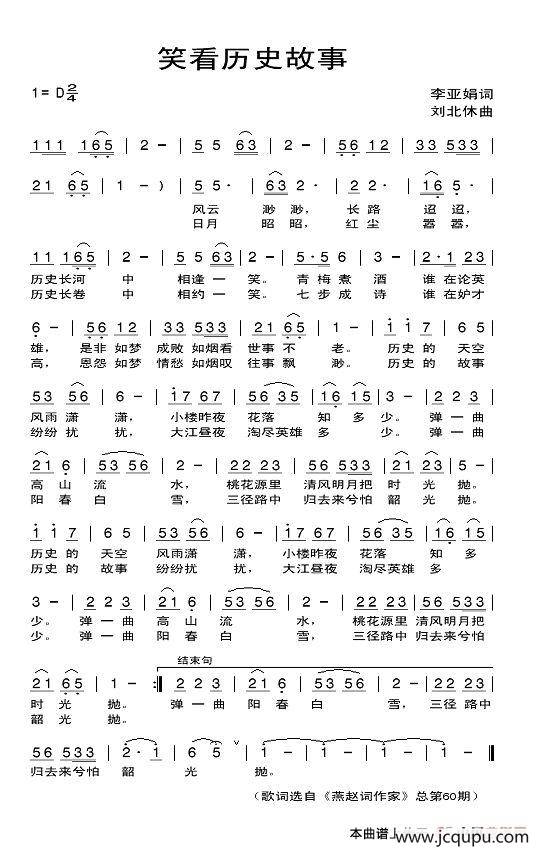 笑看历史故事
1=D 2/4
李亚娟词
刘北休曲
111 165 | 2 - | 5 5 63 | 2 - | 56 12 | 33 533 |
21 65 | 1 - ) | 5 5· | 63 2· | 2 2· | 16 5· |
风云 渺渺， 长路 迢迢，
日月 昭昭， 红尘 嚣嚣，
11 165 | 2 - | 5 5 63 | 2 - | 5·5 6 3 | 2·1 22 3 |
历史长河 中 相逢一 笑。 青梅煮 酒 谁在论英
历史长卷 中 相约一 笑。 七步成 诗 谁在妒才
6 - | 56 12 | 33 533 | 21 65 | 1 - | 1 1 7 6 |
雄， 是非如梦 成败如烟看 世事不 老。 历史的天空
高， 恩怨如梦 情愁如烟叹 往事飘 渺。 历史的故事
53 56 | 6 - | 17 67 | 53 56 | 16 15 | 3 - | 2 2 3 |
风雨潇 潇， 小楼昨夜 花落 知多 少。 弹一曲
纷纷扰 扰， 大江昼夜 淘尽英雄多 少。 弹一曲
21 6 | 53 56 | 6 - | 5 6 533 | 22 123 | 21 23 | 5 - |
高山流 水， 桃花源里 清风明月把 时光 抛。
阳春白 雪， 三径路中 归去来兮怕 韶光 抛。
1 1 7 | 6 6 5 | 53 56 | 6 - | 17 67 | 53 56 | 16 15 |
历史的 天空 风雨潇 潇， 小楼昨夜 花落 知多
历史的 故事 纷纷扰 扰， 大江昼夜 淘尽英雄多
3 - | 2 2 3 | 21 6 | 53 56 | 6 - | 2 2 23 | 56 533 |
少。 弹一曲 高山流 水， 桃花源里 清风明月把
少。 弹一曲 阳春白 雪， 三径路中 归去来兮怕
结束句
21 65 | 1 - :| 2 2 3 | 21 6 | 53 56 | 6 - | 2 2 23 |
时光 抛。 弹一曲 阳春白 雪， 三径路中
韶光 抛。
56 533 | 2·1 | 6 5 ∨ | 1 - | 1 - | 1 - | 1 - ‖
归去来兮怕 韶 光 抛。
（歌词选自《燕赵词作家》总第60期）
本曲谱上
www.jcqupu.com